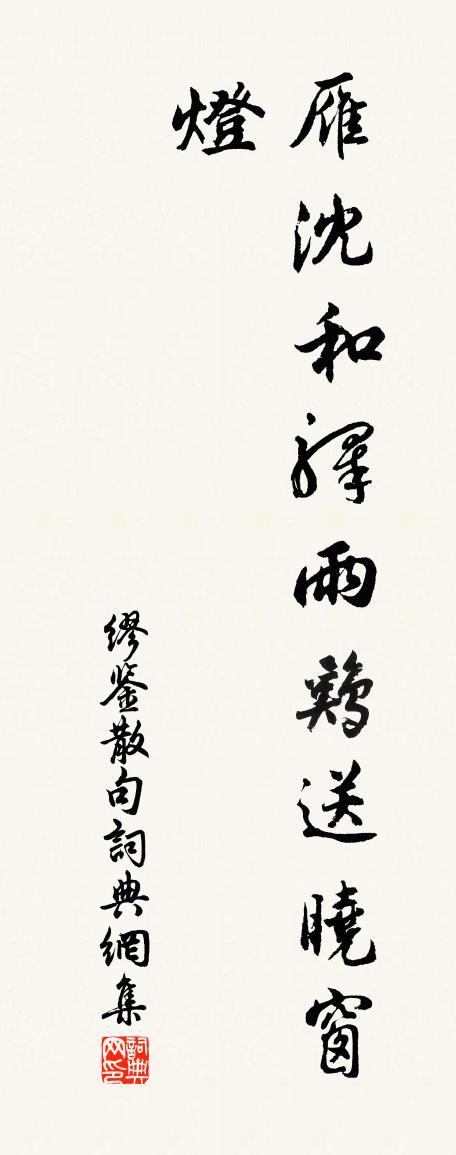 雁沈和驛雨鷄送曉窗
燈
繆鉴散句詞典網集
詞典
网印